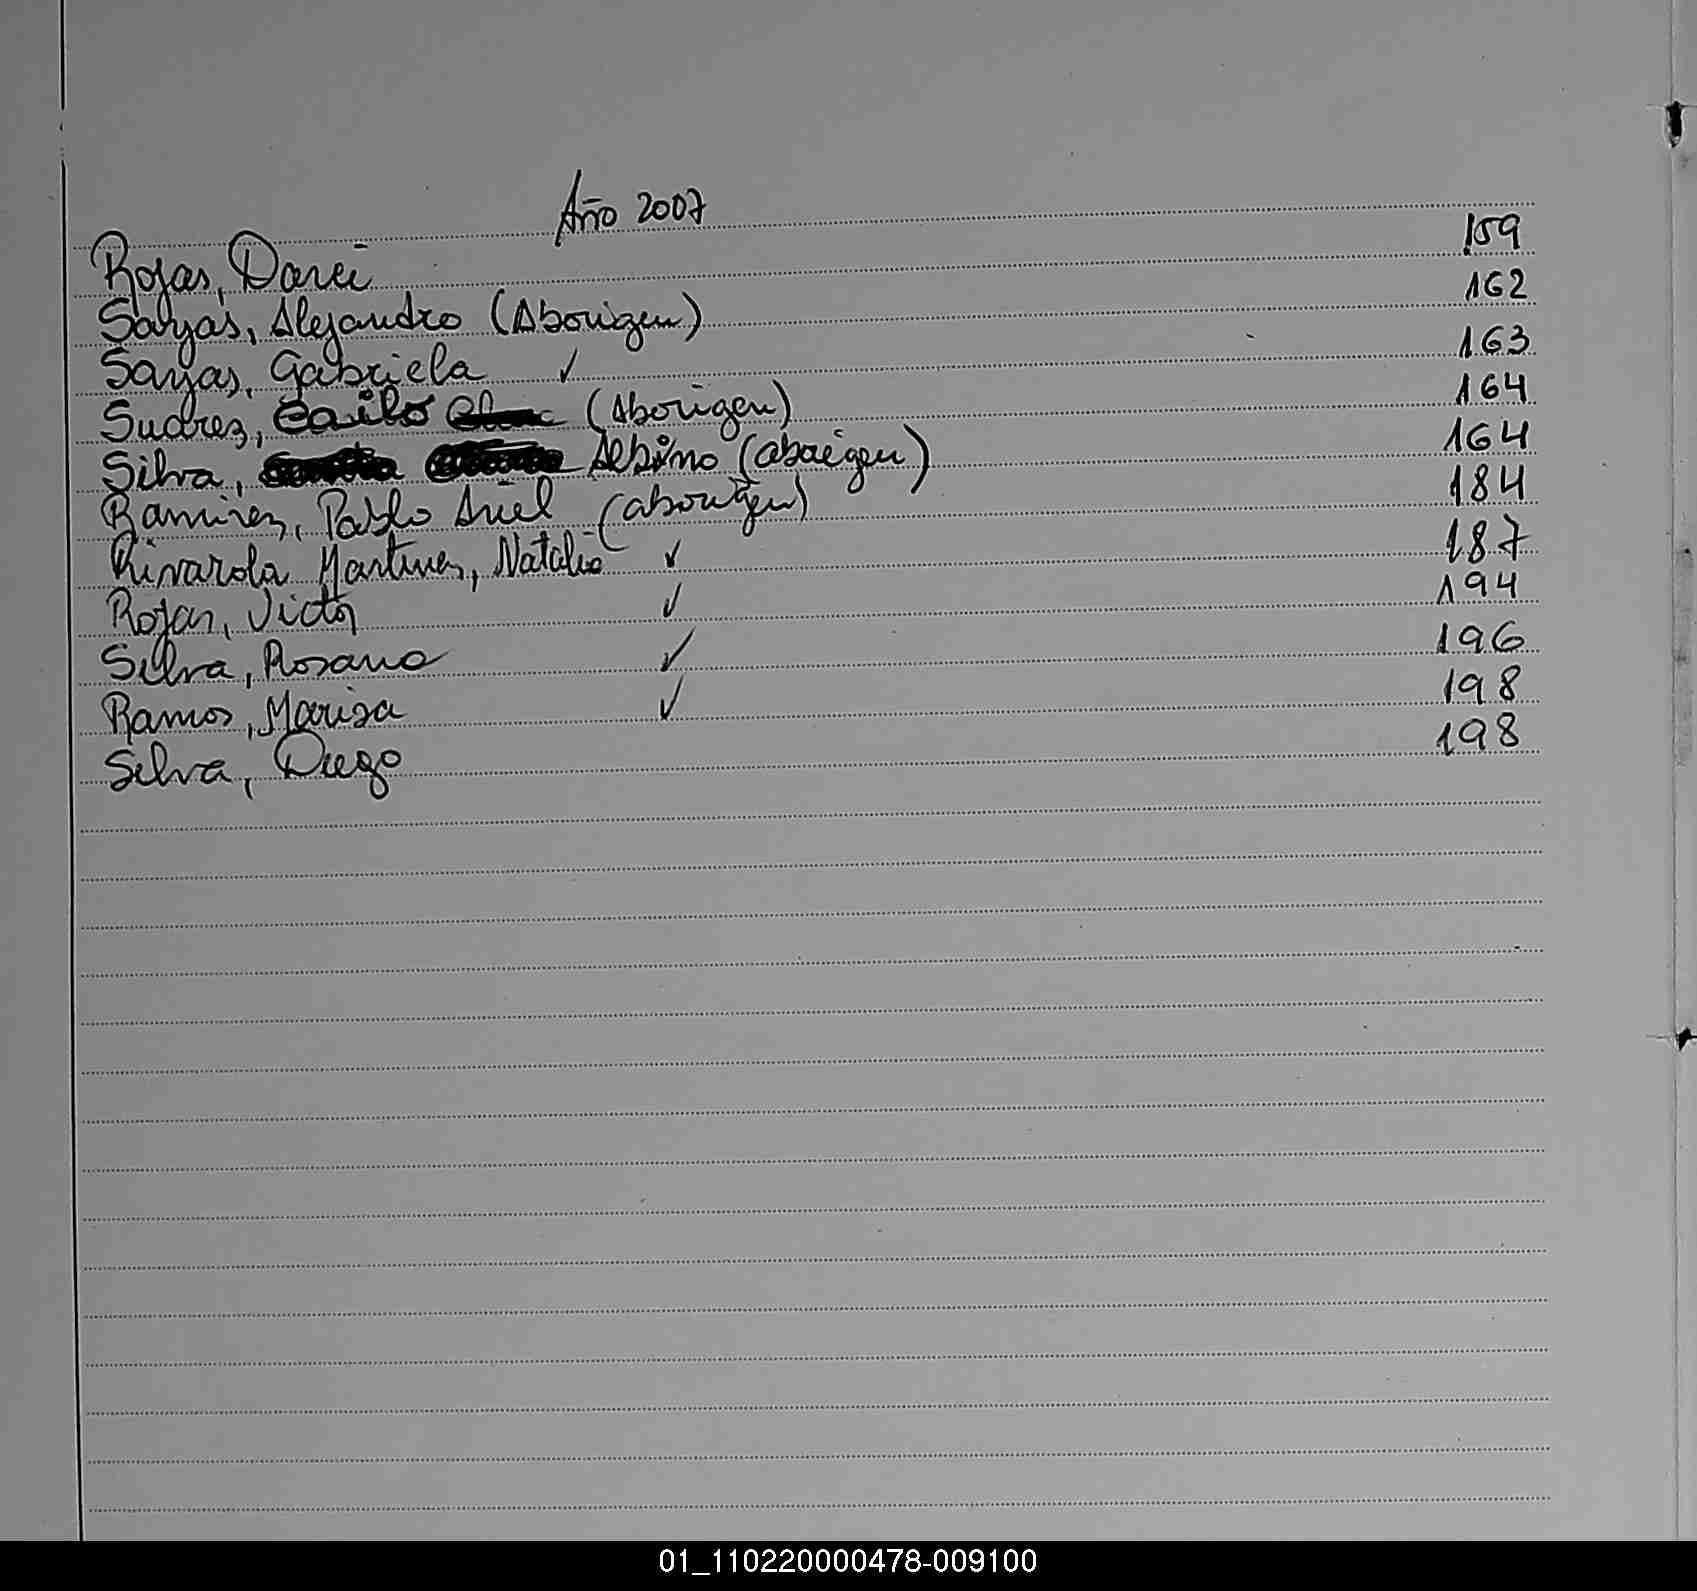 Año 2007
Rojas, Darci 159
Sayas, Alejandro (Aborigen) 162
Sayas, Gabriela ✓ 163
Suarez, (Aborigen) 164
Silva, Albino (aborigen) 164
Ramirez, Pablo Ariel (aborigen) 184
Rivarola Martinez, Natalia ✓ 187
Rojas, Victor ✓ 194
Silva, Rosana ✓ 196
Ramos, Marisa ✓ 198
Silva, Diego 198
01_110220000478-009100